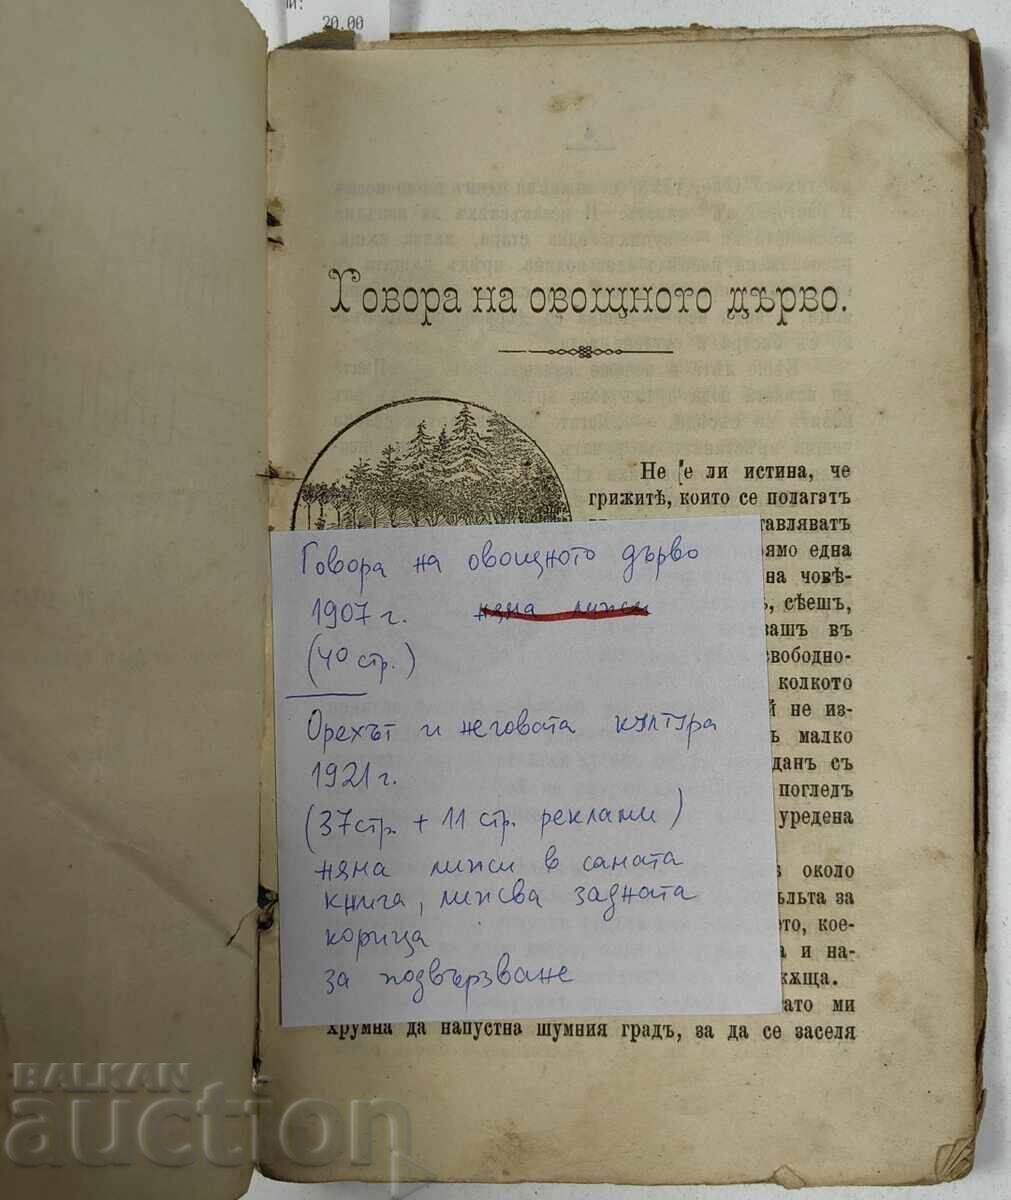 20.00
Говора на овощното дърво.
Не е ли истина, че
грижитѣ, които се полагатъ
тавляват
ямо една
на човѣ-
сѣешъ,
вашъ въ
свободно-
колкото
й не из-
ъ малко
данъ съ
погледъ
уредена
около
ълъта за
ето, кое-
а и на-
кѫща.
ато ми
хрумна да напустна шумния градъ, за да се заселя
Говора на овощното дърво
1907 г. няма липси
(40 стр.)
Орехът и неговата култура
1921 г.
(37 стр. + 11 стр. реклами)
няма липси в самата
книга, липсва задната
корица
за подвързване
BALKAN
auction